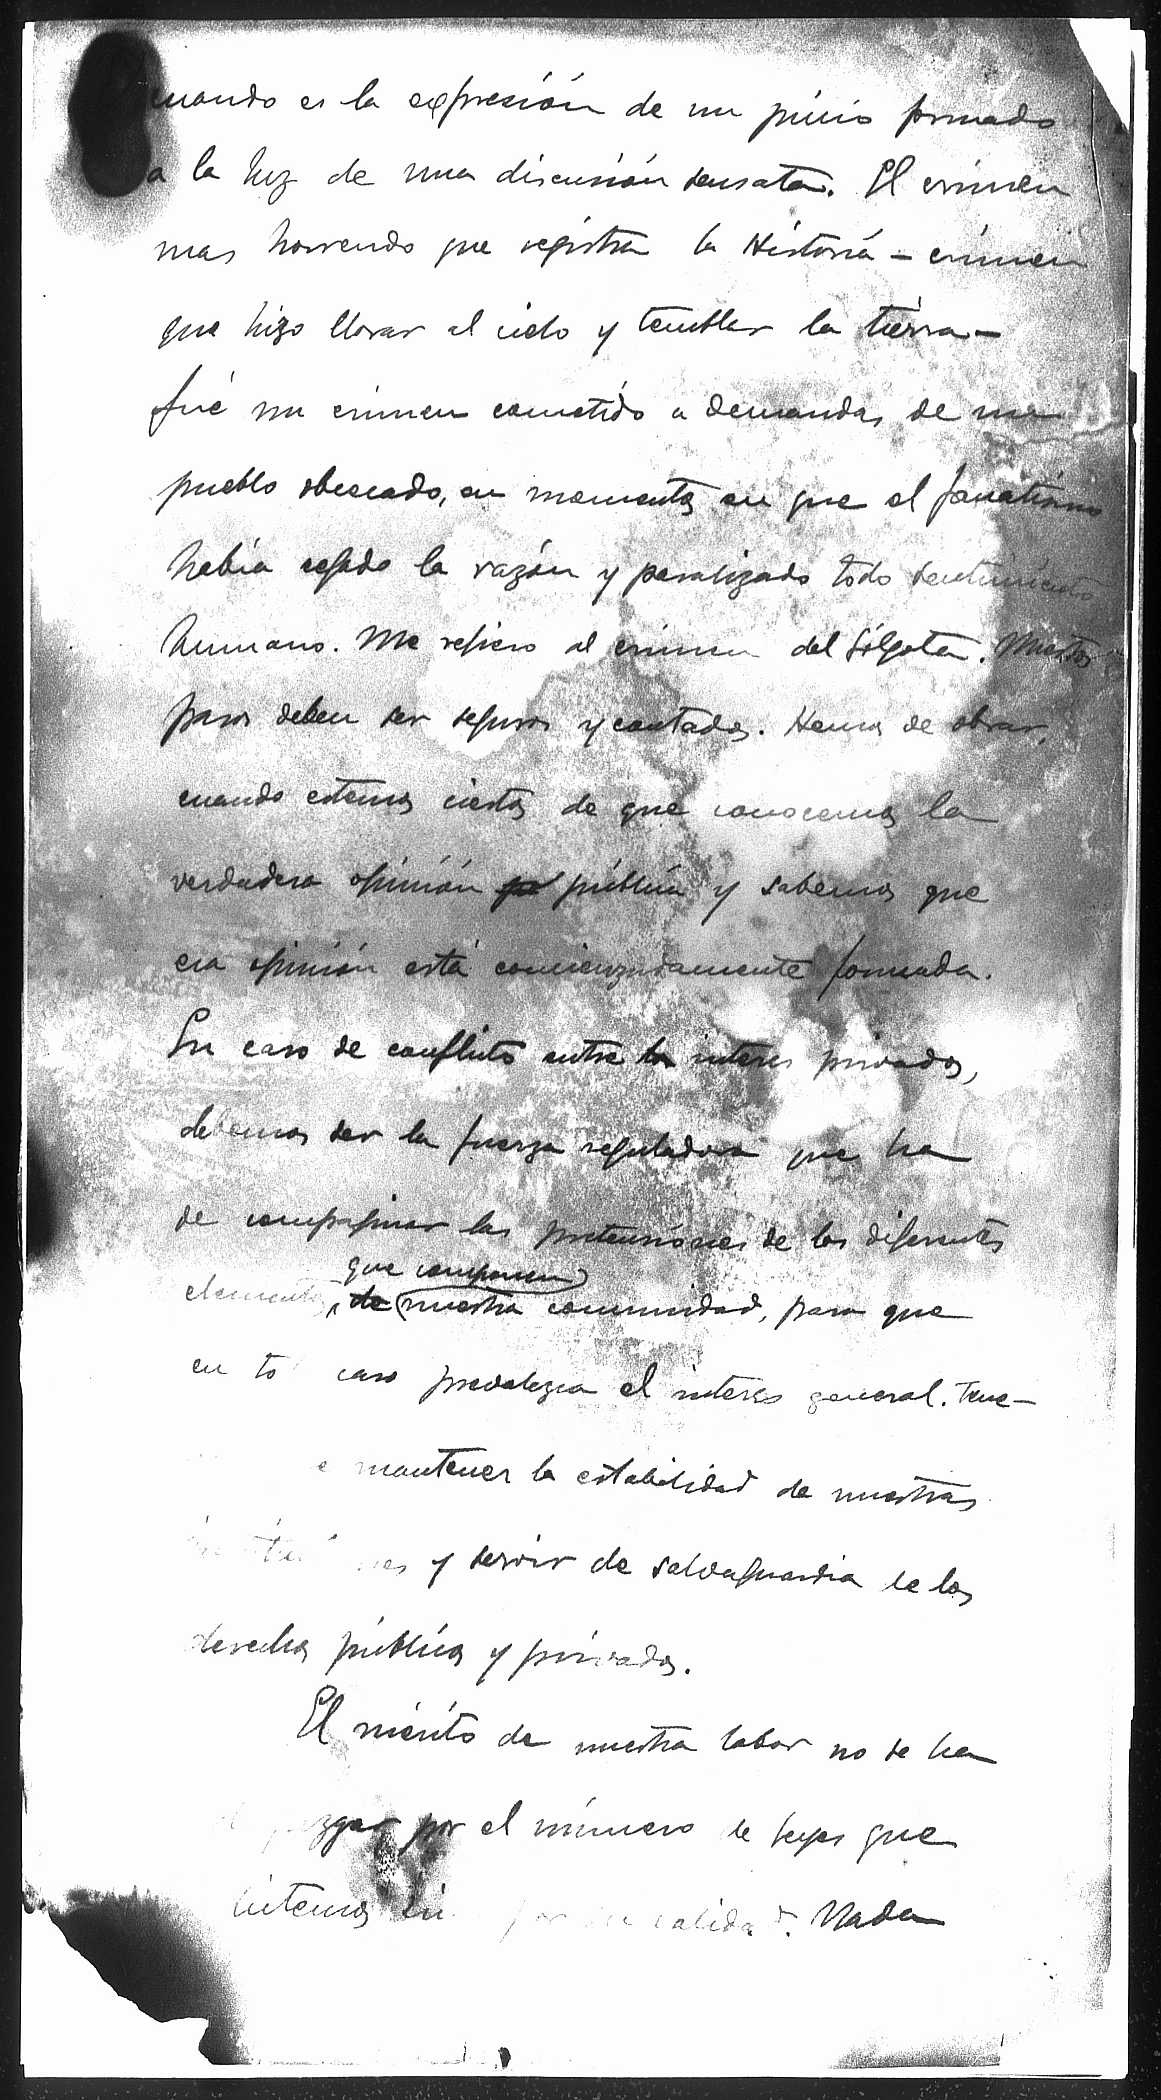 cuando es la expresión de un juicio formado
a la luz de una discusión sensata. El crimen
mas horrendo que registra la Historia – crimen
que hizo llorar al cielo y temblar la tierra –
fué un crimen cometido a demandas de un
pueblo obcecado, en momentos en que el fanatismo
había cegado la razón y paralizado todo sentimiento
humano. Me refiero al crimen del Gólgota. Nuestros
pasos deben ser seguros y contados. Hemos de obrar,
cuando estemos ciertos de que conocemos la
verdadera opinión pública y sabemos que
esa opinión está concienzudamente formada.
En caso de conflicto entre interes privados,
debemos ser la fuerza reguladora que ha
de compaginar las pretensiones de los diferentes
que componen
elementos de nuestra comunidad, para que
en to caso prevalezca el interes general. Tene-
e mantener la estabilidad de nuestras
y servir de salvaguardia de los
derechos públicos y privados.
El mérito de nuestra labor no se ha
juzgar por el número de leyes que
por su calidad. Nada